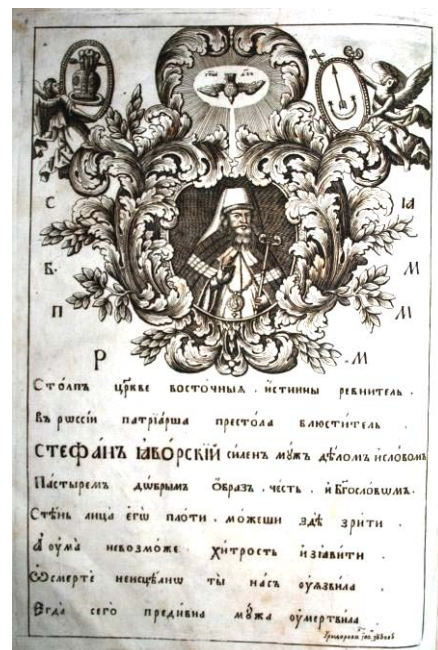 С ІА
Б. М
П М
Р .М
Сто́лпъ цр҃кве восто́чныѧ . и҆́стинны ревнитель .
Въ рѡссі́и патрїа́рша престо́ла блюсти́тель .
СТЕФА́НЪ ІАВО́РСКЇЙ си́ленъ мꙋ́жъ дѣ́ломъ и҆сло́вомъ
Па́стыремъ дѡ́брымъ ѻ҆́бразъ . че́сть . и҆ Бг҃осло́вѡмъ .
Стѣ́нь лица̀ є҆гѡ̀ пло́ти . мо́жеши здѣ̀ зрѣ́ти .
А҆ ᲂу҆ма̀ невозмо́же хи́трость и҆зіави́ти .
Ѽ сме́рте неисцѣ́лнѡ ты̀ на́съ ᲂу҆ѧзви́ла .
Є҆гда̀ сего̀ преди́вна мꙋ́жа ᲂу҆мертви́ла .